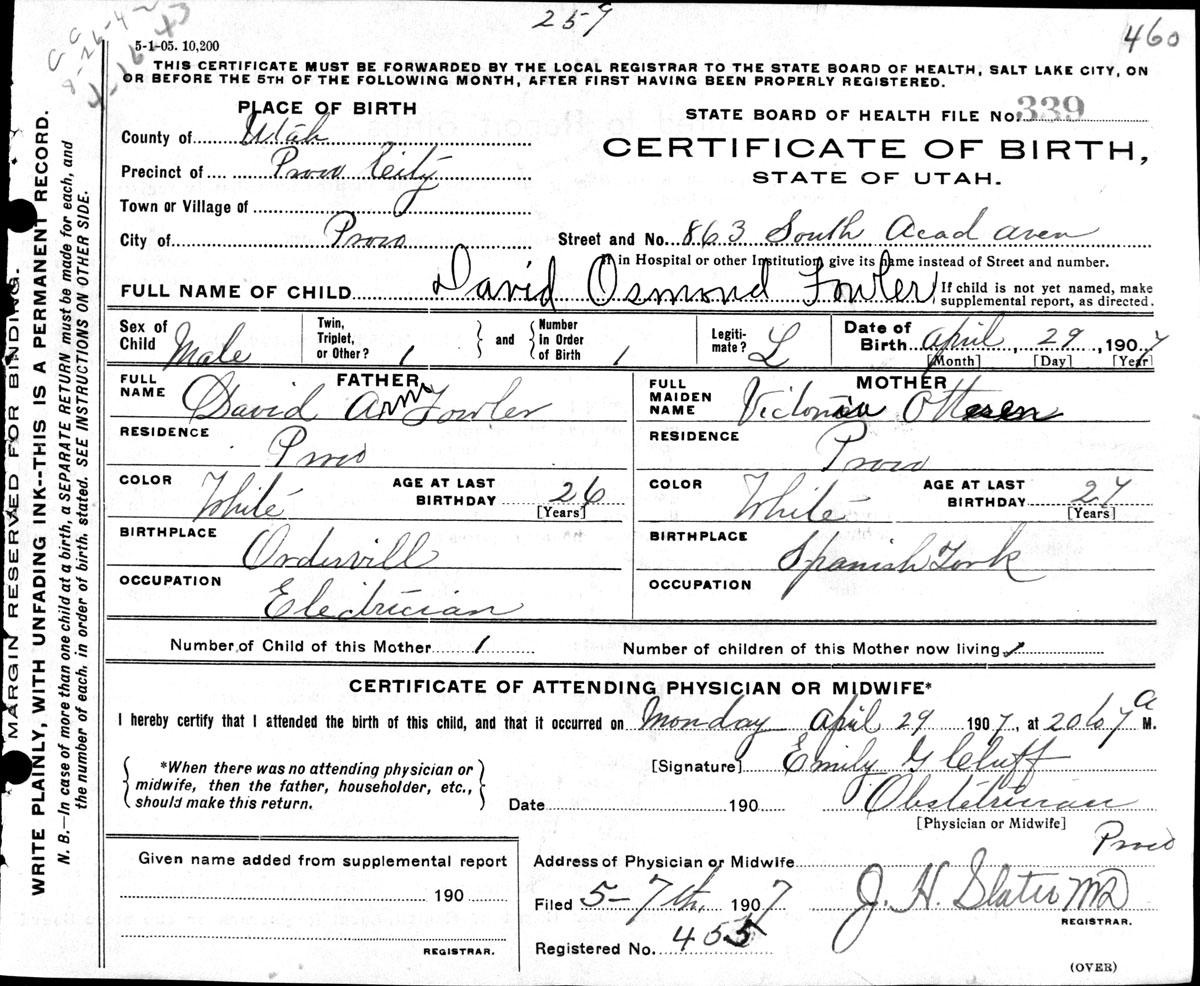 259
460
8-26-42
5-1-05. 10,200
THIS CERTIFICATE MUST BE FORWARDED BY THE LOCAL REGISTRAR TO THE STATE BOARD OF HEALTH, SALT LAKE CITY, ON
OR BEFORE THE 5TH OF THE FOLLOWING MONTH, AFTER FIRST HAVING BEEN PROPERLY REGISTERED.
PLACE OF BIRTH
County of Utah
Precinct of Provo City
Town or Village of
City of Provo
STATE BOARD OF HEALTH FILE No. 339
CERTIFICATE OF BIRTH,
STATE OF UTAH.
Street and No. 863 South Acad aven
If in Hospital or other Institution, give its name instead of Street and number.
FULL NAME OF CHILD David Osmond Fowler
If child is not yet named, make
supplemental report, as directed.
Sex of
Child Male
Twin,
Triplet,
or Other? 1
and
Number
In Order
of Birth 1
Legiti-
mate? L
Date of
Birth April, 29, 1907
[Month] [Day] [Year]
FATHER
FULL
NAME David Arm Fowler
RESIDENCE
Provo
COLOR White
AGE AT LAST
BIRTHDAY 26
[Years]
BIRTHPLACE
Ordervill
OCCUPATION
Electrician
MOTHER
FULL
MAIDEN
NAME Victoria Ottesen
RESIDENCE
Provo
COLOR White
AGE AT LAST
BIRTHDAY 27
[Years]
BIRTHPLACE
Spanish Fork
OCCUPATION
Number of Child of this Mother 1
Number of children of this Mother now living 1
CERTIFICATE OF ATTENDING PHYSICIAN OR MIDWIFE*
I hereby certify that I attended the birth of this child, and that it occurred on Monday April 29 1907, at 20 to 7 a M.
*When there was no attending physician or
midwife, then the father, householder, etc.,
should make this return.
[Signature] Emily G Cluff
Date 190 Obstetrician
[Physician or Midwife]
Given name added from supplemental report
190
REGISTRAR.
Address of Physician or Midwife Provo
Filed 5-7th, 1907 J. H. Slater MD
REGISTRAR.
Registered No. 455
(OVER)
MARGIN RESERVED FOR BINDING.
WRITE PLAINLY, WITH UNFADING INK--THIS IS A PERMANENT RECORD.
N. B.—In case of more than one child at a birth, a SEPARATE RETURN must be made for each, and
the number of each, in order of birth, stated. SEE INSTRUCTIONS ON OTHER SIDE.